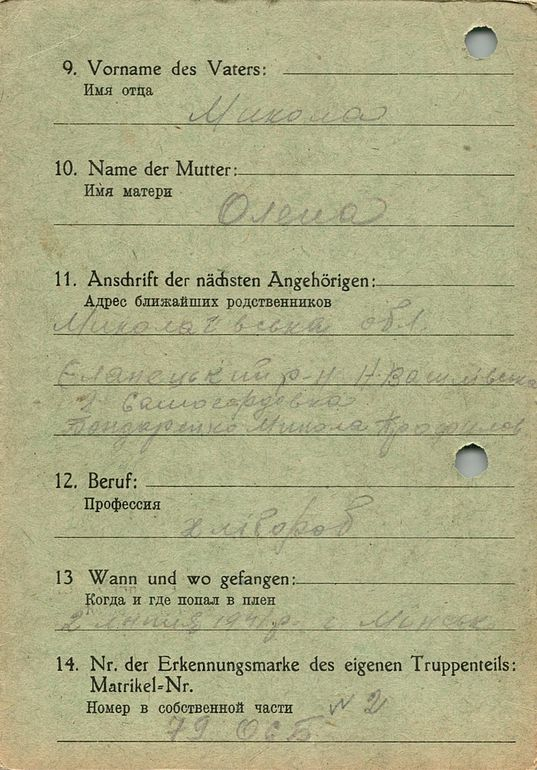 9. Vorname des Vaters:
Имя отца
Микола
10. Name der Mutter:
Имя матери
Олена
11. Anschrift der nächsten Angehörigen:
Адрес ближайших родственников
Миколаївська обл.
Єланецький р-н Н-Василівська
Бондаренко Микола
12. Beruf:
Профессия
хлібороб
13 Wann und wo gefangen:
Когда и где попал в плен
2 липня 1941 р. г. Мінськ
14. Nr. der Erkennungsmarke des eigenen Truppenteils:
Matrikel-Nr.
Номер в собственной части
N 2
79 ОСБ